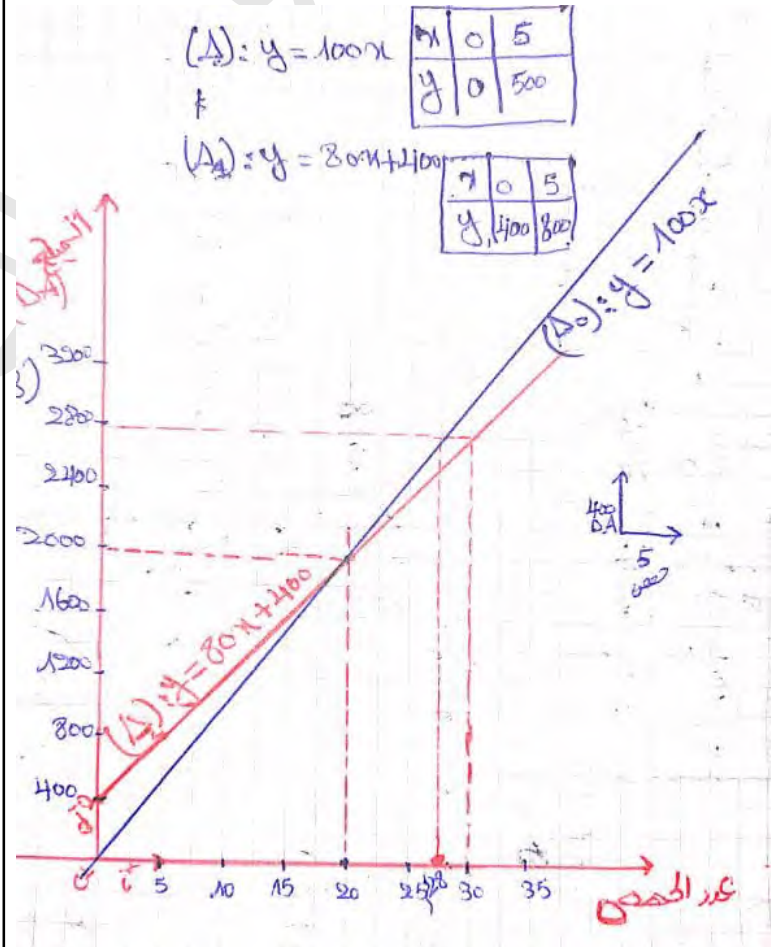 (Δ): y = 100x
x 0 5
y 0 500
(Δ1): y = 80x+400
x 0 5
y 400 800
(Δ0): y = 100x
3200
2800
2400
2000
1600
1200
800
400
(Δ2): y = 80x+400
400 DA
5
حصص
5 10 15 20 25 28 30 35
عدد الحصص